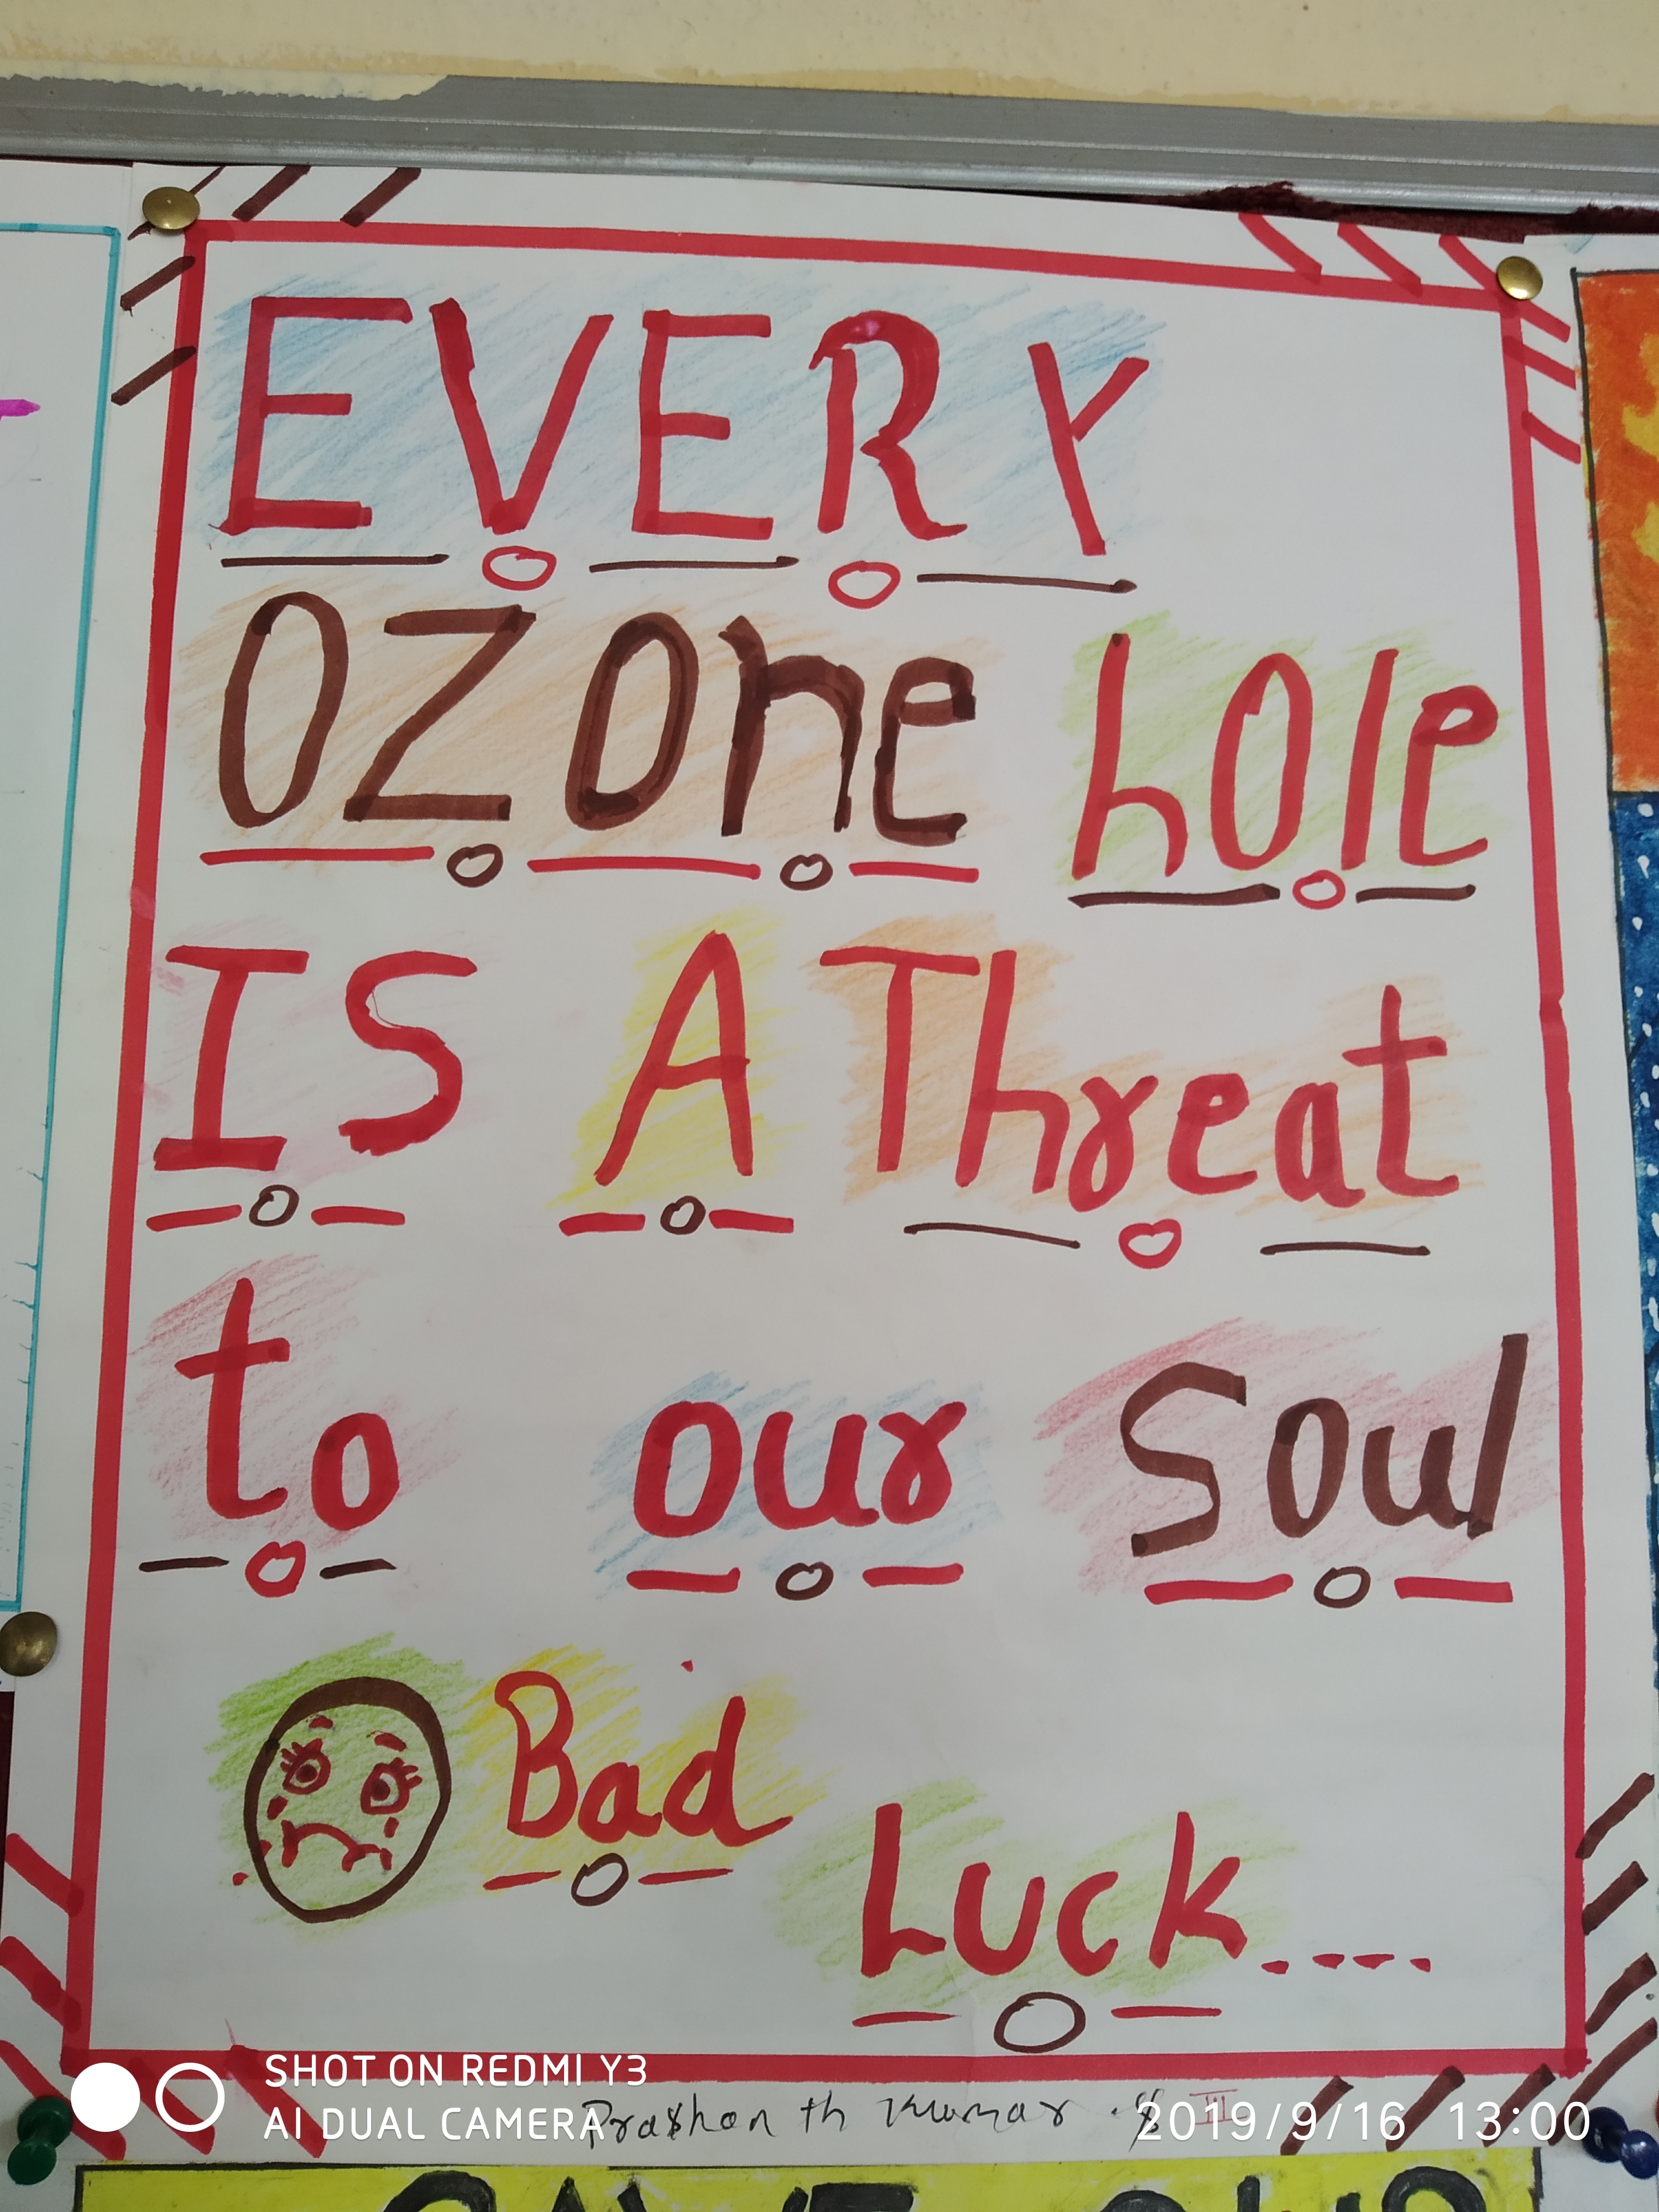 EVERY
OZOne hole
IS A Threat
to our Soul
Bad
Luck....
SHOT ON REDMI Y3
AI DUAL CAMERA
Prashanth Kumar .S III
2019/9/16 13:00